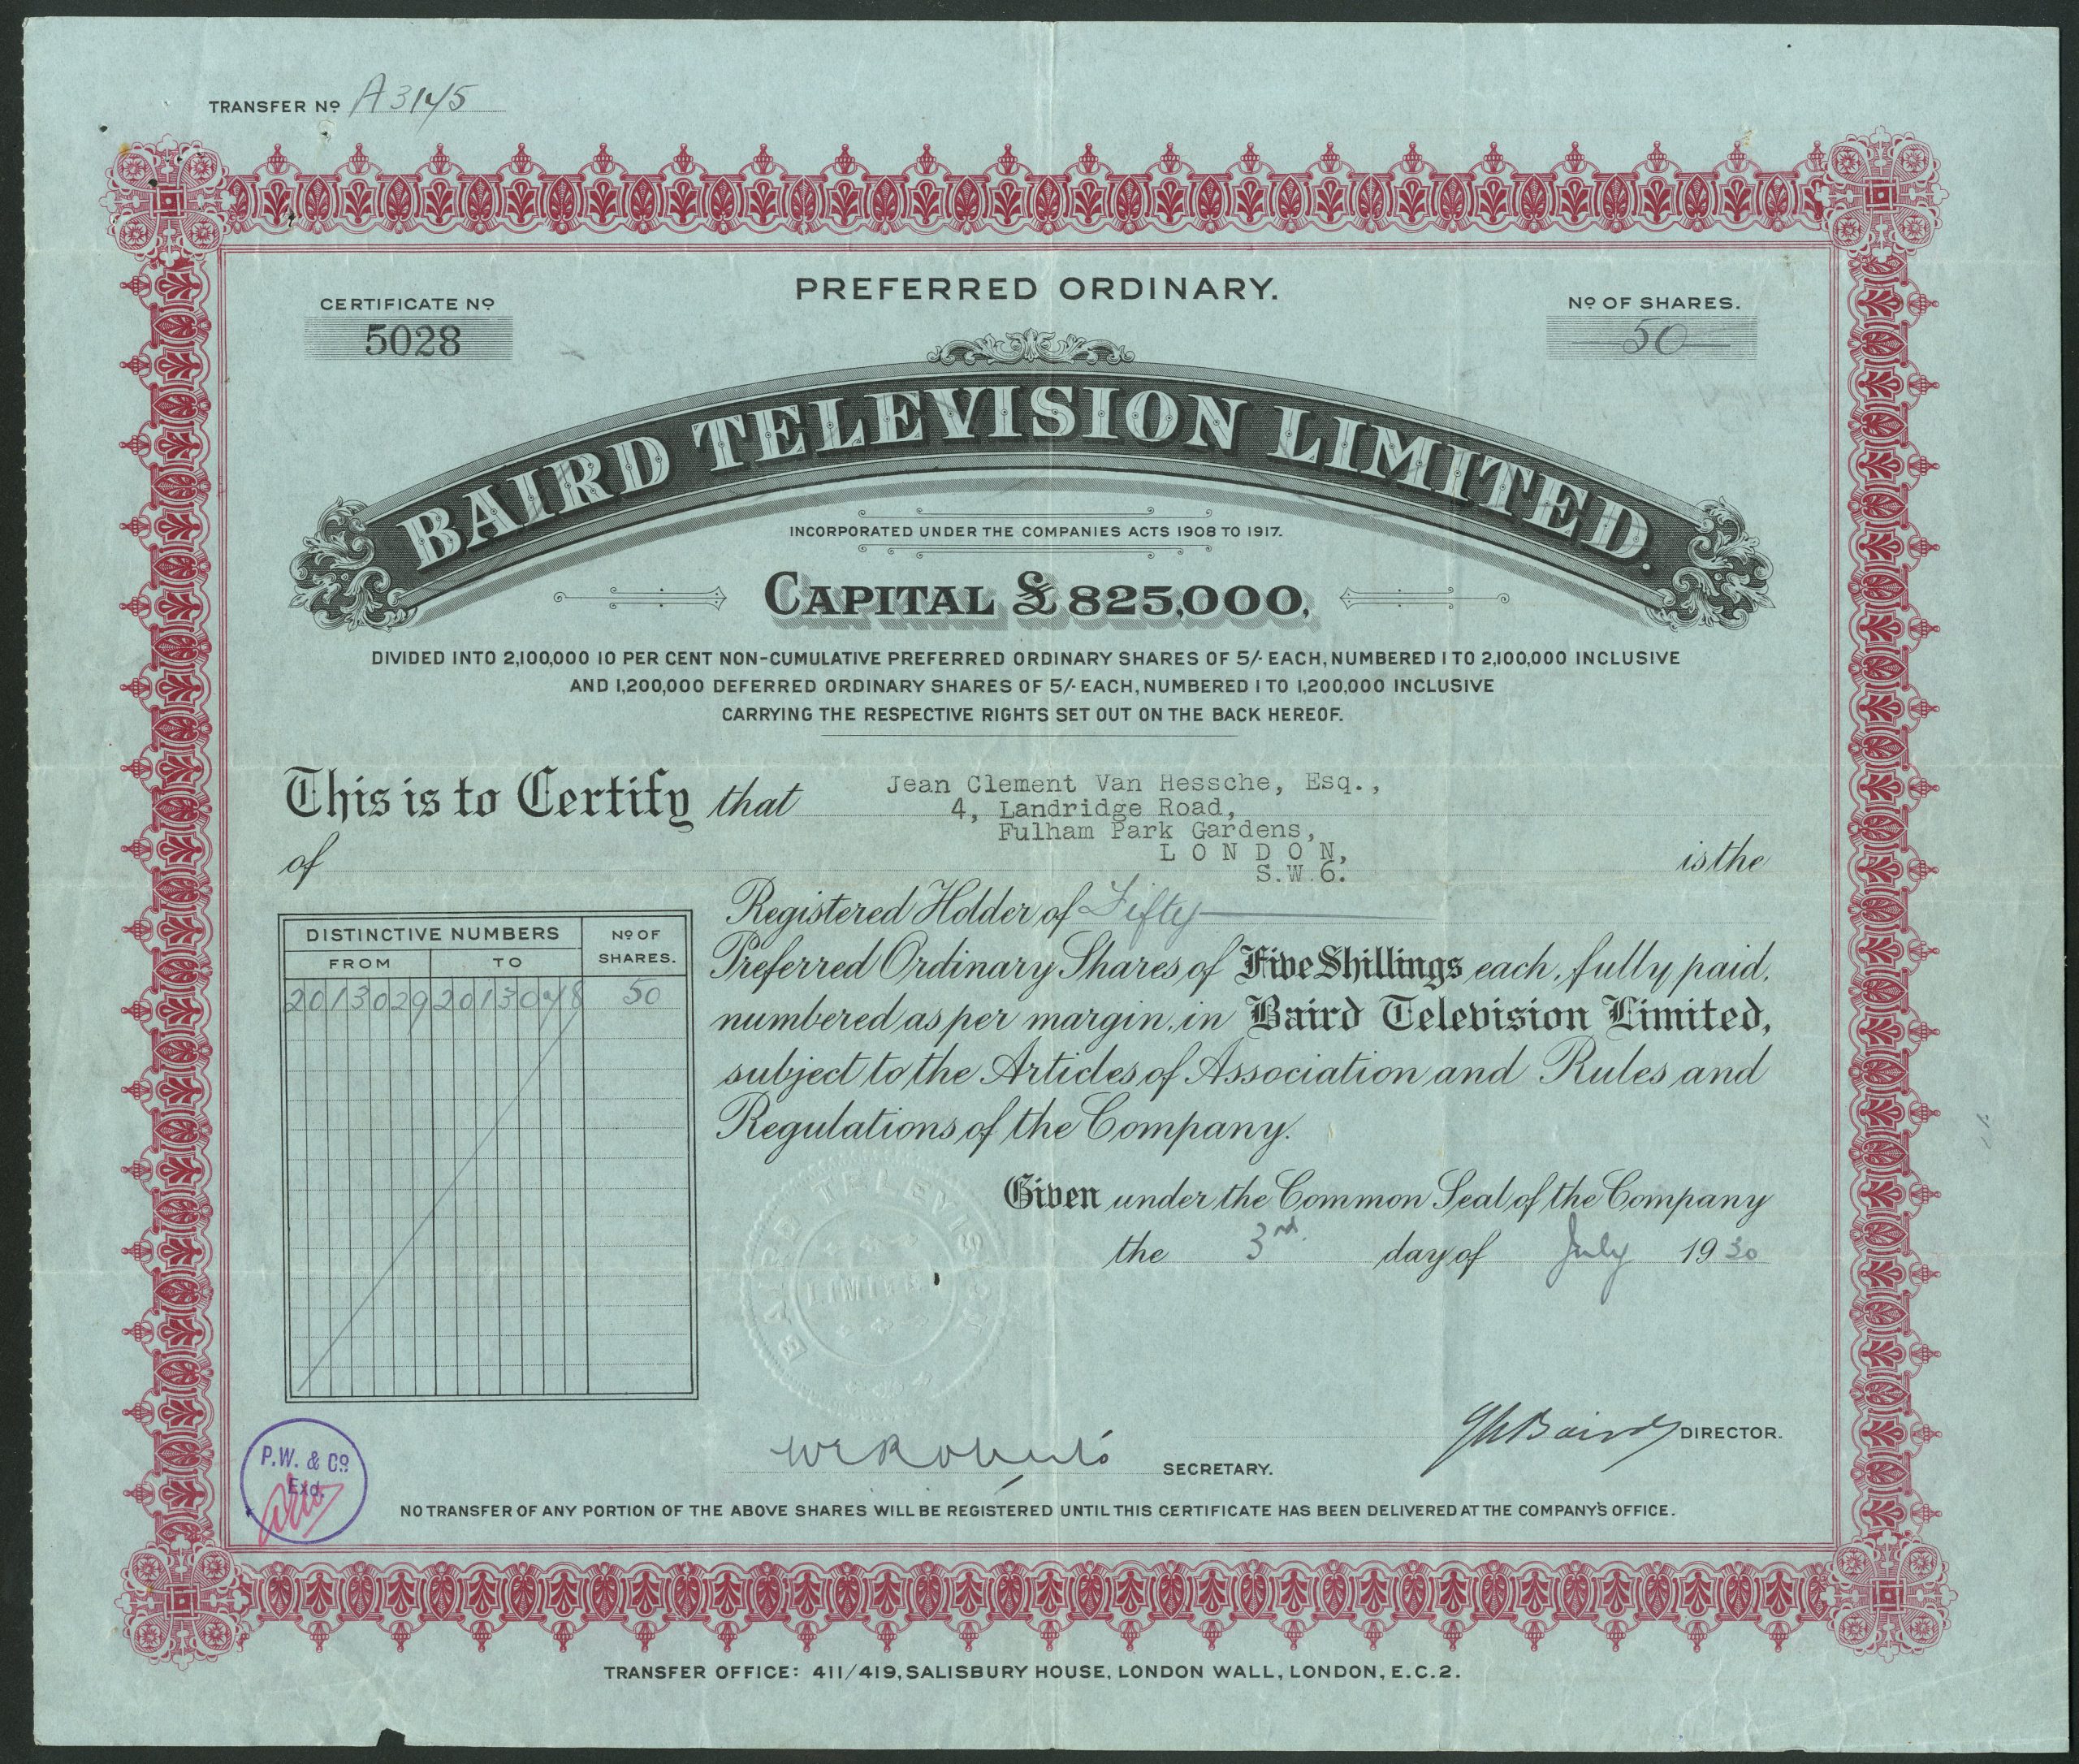 TRANSFER No A3145
PREFERRED ORDINARY.
CERTIFICATE No
5028
No OF SHARES.
50
BAIRD TELEVISION LIMITED.
INCORPORATED UNDER THE COMPANIES ACTS 1908 TO 1917.
CAPITAL £825,000,
DIVIDED INTO 2,100,000 10 PER CENT NON-CUMULATIVE PREFERRED ORDINARY SHARES OF 5/- EACH, NUMBERED 1 TO 2,100,000 INCLUSIVE
AND 1,200,000 DEFERRED ORDINARY SHARES OF 5/- EACH, NUMBERED 1 TO 1,200,000 INCLUSIVE
CARRYING THE RESPECTIVE RIGHTS SET OUT ON THE BACK HEREOF.
This is to Certify that Jean Clement Van Hessche, Esq.,
4, Landridge Road,
Fulham Park Gardens,
of L O N D O N, is the
S.W.6.
Registered Holder of Fifty
Preferred Ordinary Shares of Five Shillings each, fully paid,
numbered as per margin, in Baird Television Limited,
subject to the Articles of Association and Rules and
Regulations of the Company.
DISTINCTIVE NUMBERS No OF SHARES.
FROM TO
2013029 2013078 50
Given under the Common Seal of the Company
the 3rd. day of July 1930
BAIRD TELEVISION
LIMITED
W E Roberts SECRETARY.
J L Baird DIRECTOR.
P.W. & Co
Exd.
NO TRANSFER OF ANY PORTION OF THE ABOVE SHARES WILL BE REGISTERED UNTIL THIS CERTIFICATE HAS BEEN DELIVERED AT THE COMPANY'S OFFICE.
TRANSFER OFFICE: 411/419, SALISBURY HOUSE, LONDON WALL, LONDON, E.C.2.